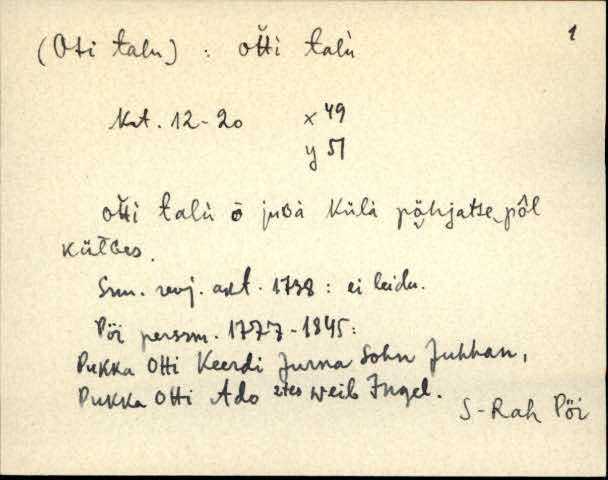 1
(Oti talu) : ot̆ti talù
Kat. 12-20 x 49
y 51
ot̆ti talù ō juʙà külà põhjatse pôl
külʙes.
Snn. revj. akt. 1738: ei leidu.
Pöi persnn. 1777-1845:
Pukka Otti Keerdi Jurna Sohn Juhhan,
Pukka Otti Ado 2tes weib Ingel.
S-Rah Pöi